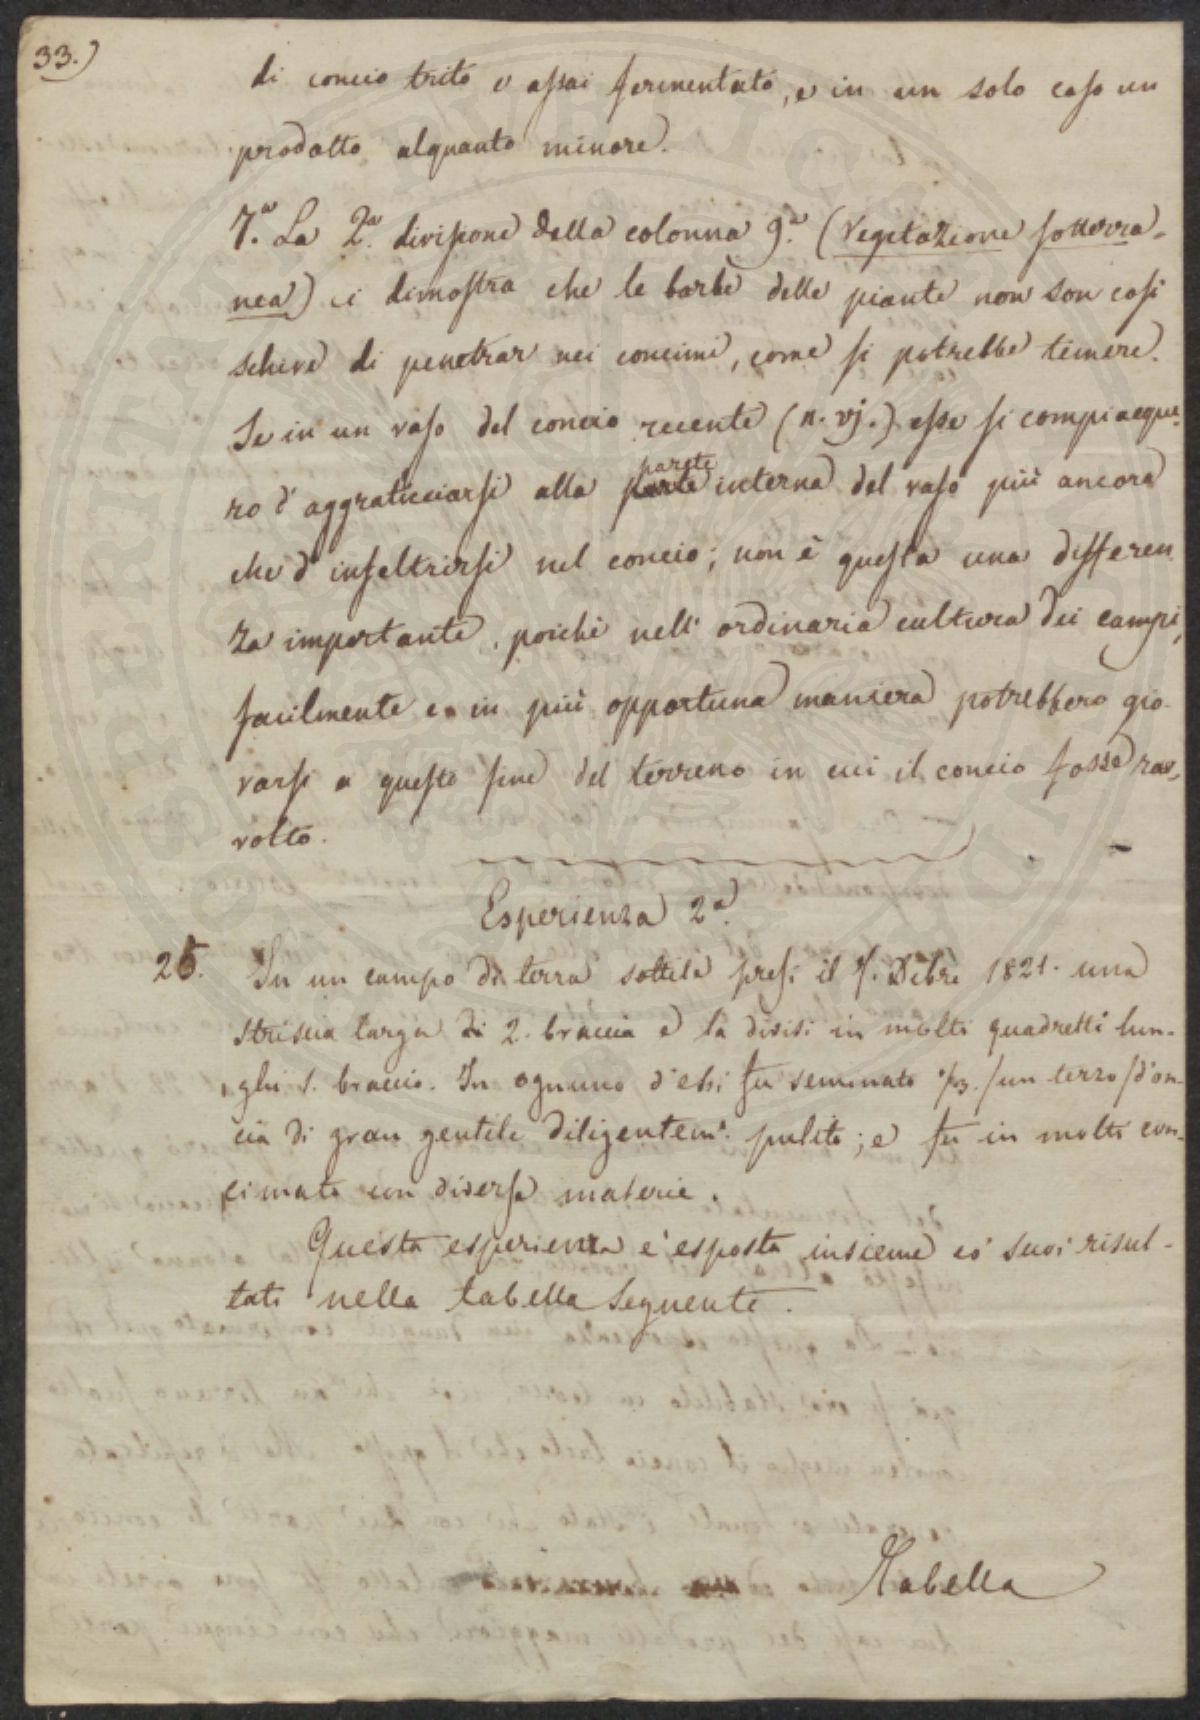 33.)
di concio trito e assai fermentato, e in un solo caso un
prodotto alquanto minore.
7.a La 2.a divisione della colonna 9.a (Vegetazione sotterra-
nea) ci dimostra che le barbe delle piante non son così
schive di penetrar nei concimi, come si potrebbe temere.
Se in un vaso del concio recente (n. vj.) esse si compiacque-
ro d'aggraticciarsi alla parete interna del vaso più ancora
che d'infeltrirsi nel concio; non è questa una differen
za importante, poichè nell'ordinaria cultura dei campi,
facilmente e in più opportuna maniera potrebbero gio-
varsi a questo fine del terreno in cui il concio fosse rav-
volto.
Esperienza 2.a
25. In un campo di terra sottile presi il 7. Dcbre 1821. una
striscia larga di 2. braccia e la divisi in molti quadretti lun-
ghi 1. braccio. In ognuno d'essi fu seminato /un terzo/ d'on-
cia di gran gentile diligentem.e pulito; e fu in molti con-
cimato con diverse materie.
Questa esperienza è esposta insieme co' suoi risul-
tati nella tabella seguente.
Tabella